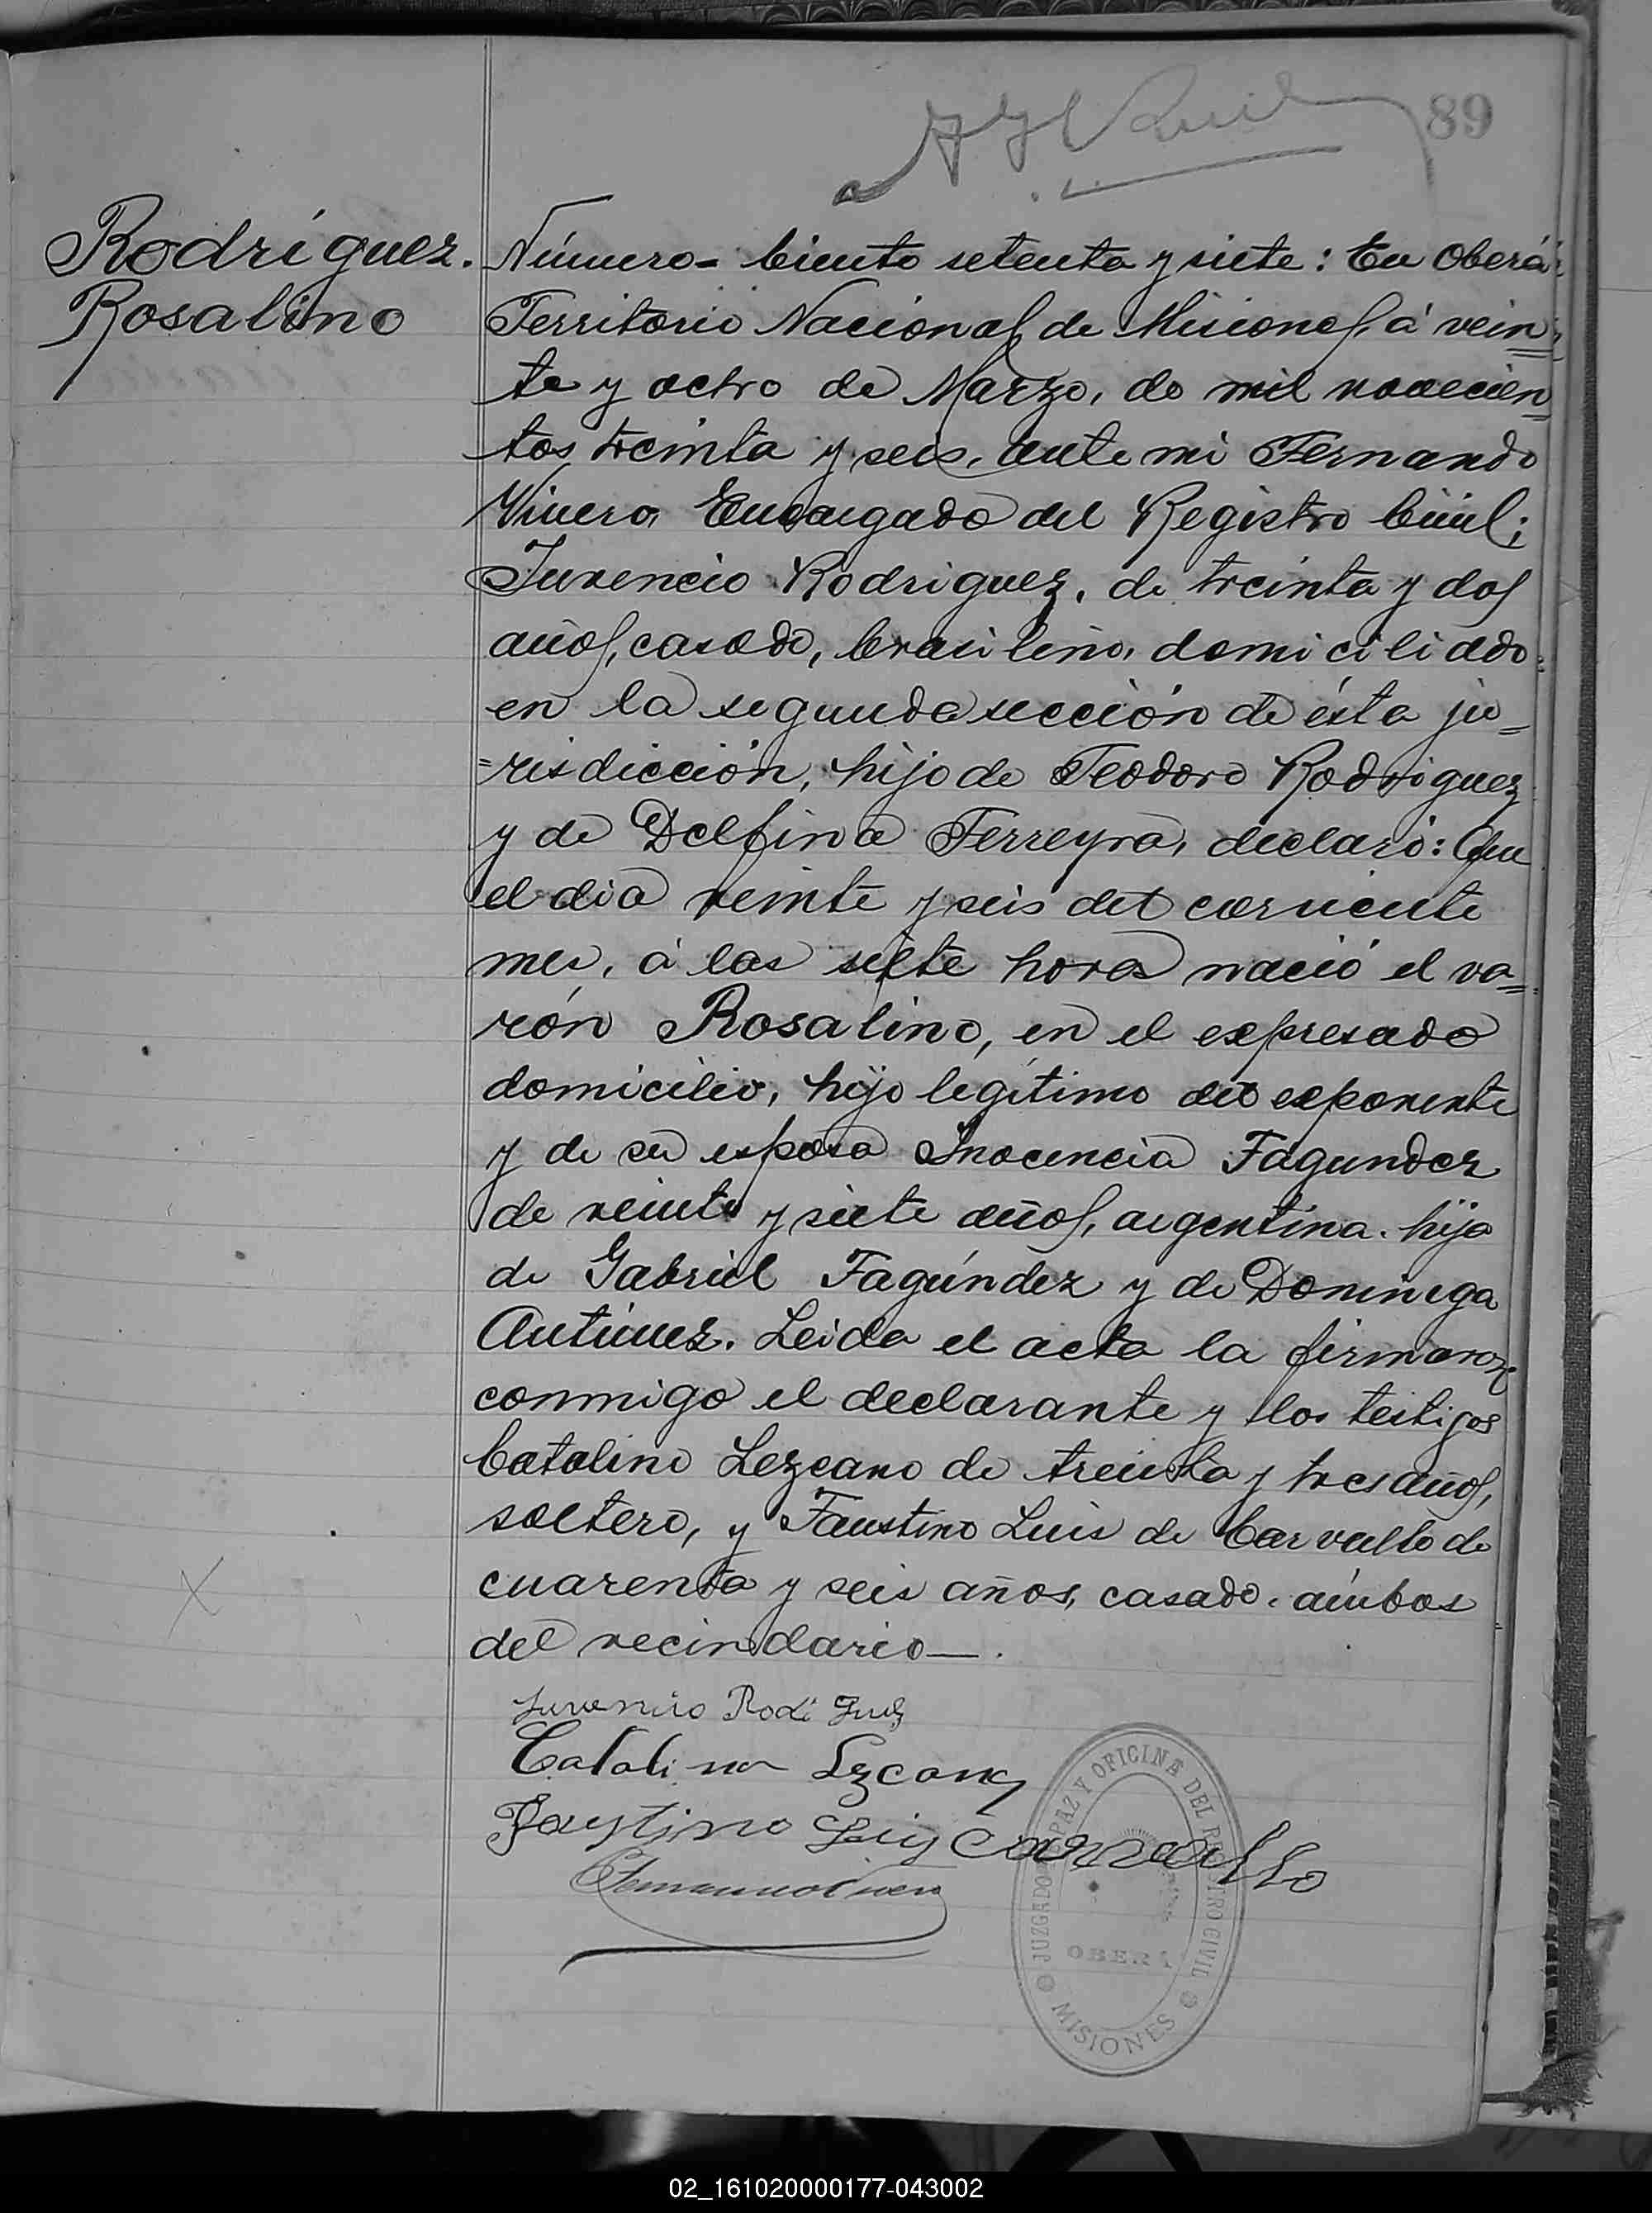 89
Rodríguez.
Rosalino
Número= Ciento setenta y siete: En Oberá
Territorio Nacional de Misiones, á vein=
te y ocho de Marzo, de mil novecien=
tos treinta y seis, ante mi Fernando
Vivero, Encargado del Registro Civil;
Juvencio Rodriguez, de treinta y dos
años, casado, brasileño, domiciliado
en la segunda sección de ésta ju=
=risdicción, hijo de Teodoro Rodriguez
y de Delfina Ferreyra, declaró: Que
el dia veinte y seis del corriente
mes, á las siete horas nació el va=
rón Rosalino, en el expresado
domicilio, hijo legítimo del exponente
y de su esposa Inocencia Fagundez
de veinte y siete años, argentina. hija
de Gabriel Fagúndez y de Dominga
Antúnez. Leida el acta la firmaron
conmigo el declarante y los testigos
Catalino Lezcano de treinta y tres años,
soltero, y Faustino Luis de Carvallo de
cuarenta y seis años, casado. ámbos
del vecindario—.
Juvencio Rodi Guez
Catalino Lzcano
Faustino Luiz Carvallho
JUZGADO DE PAZ Y OFICINA DEL REGISTRO CIVIL
OBERÁ
MISIONES
02_161020000177-043002